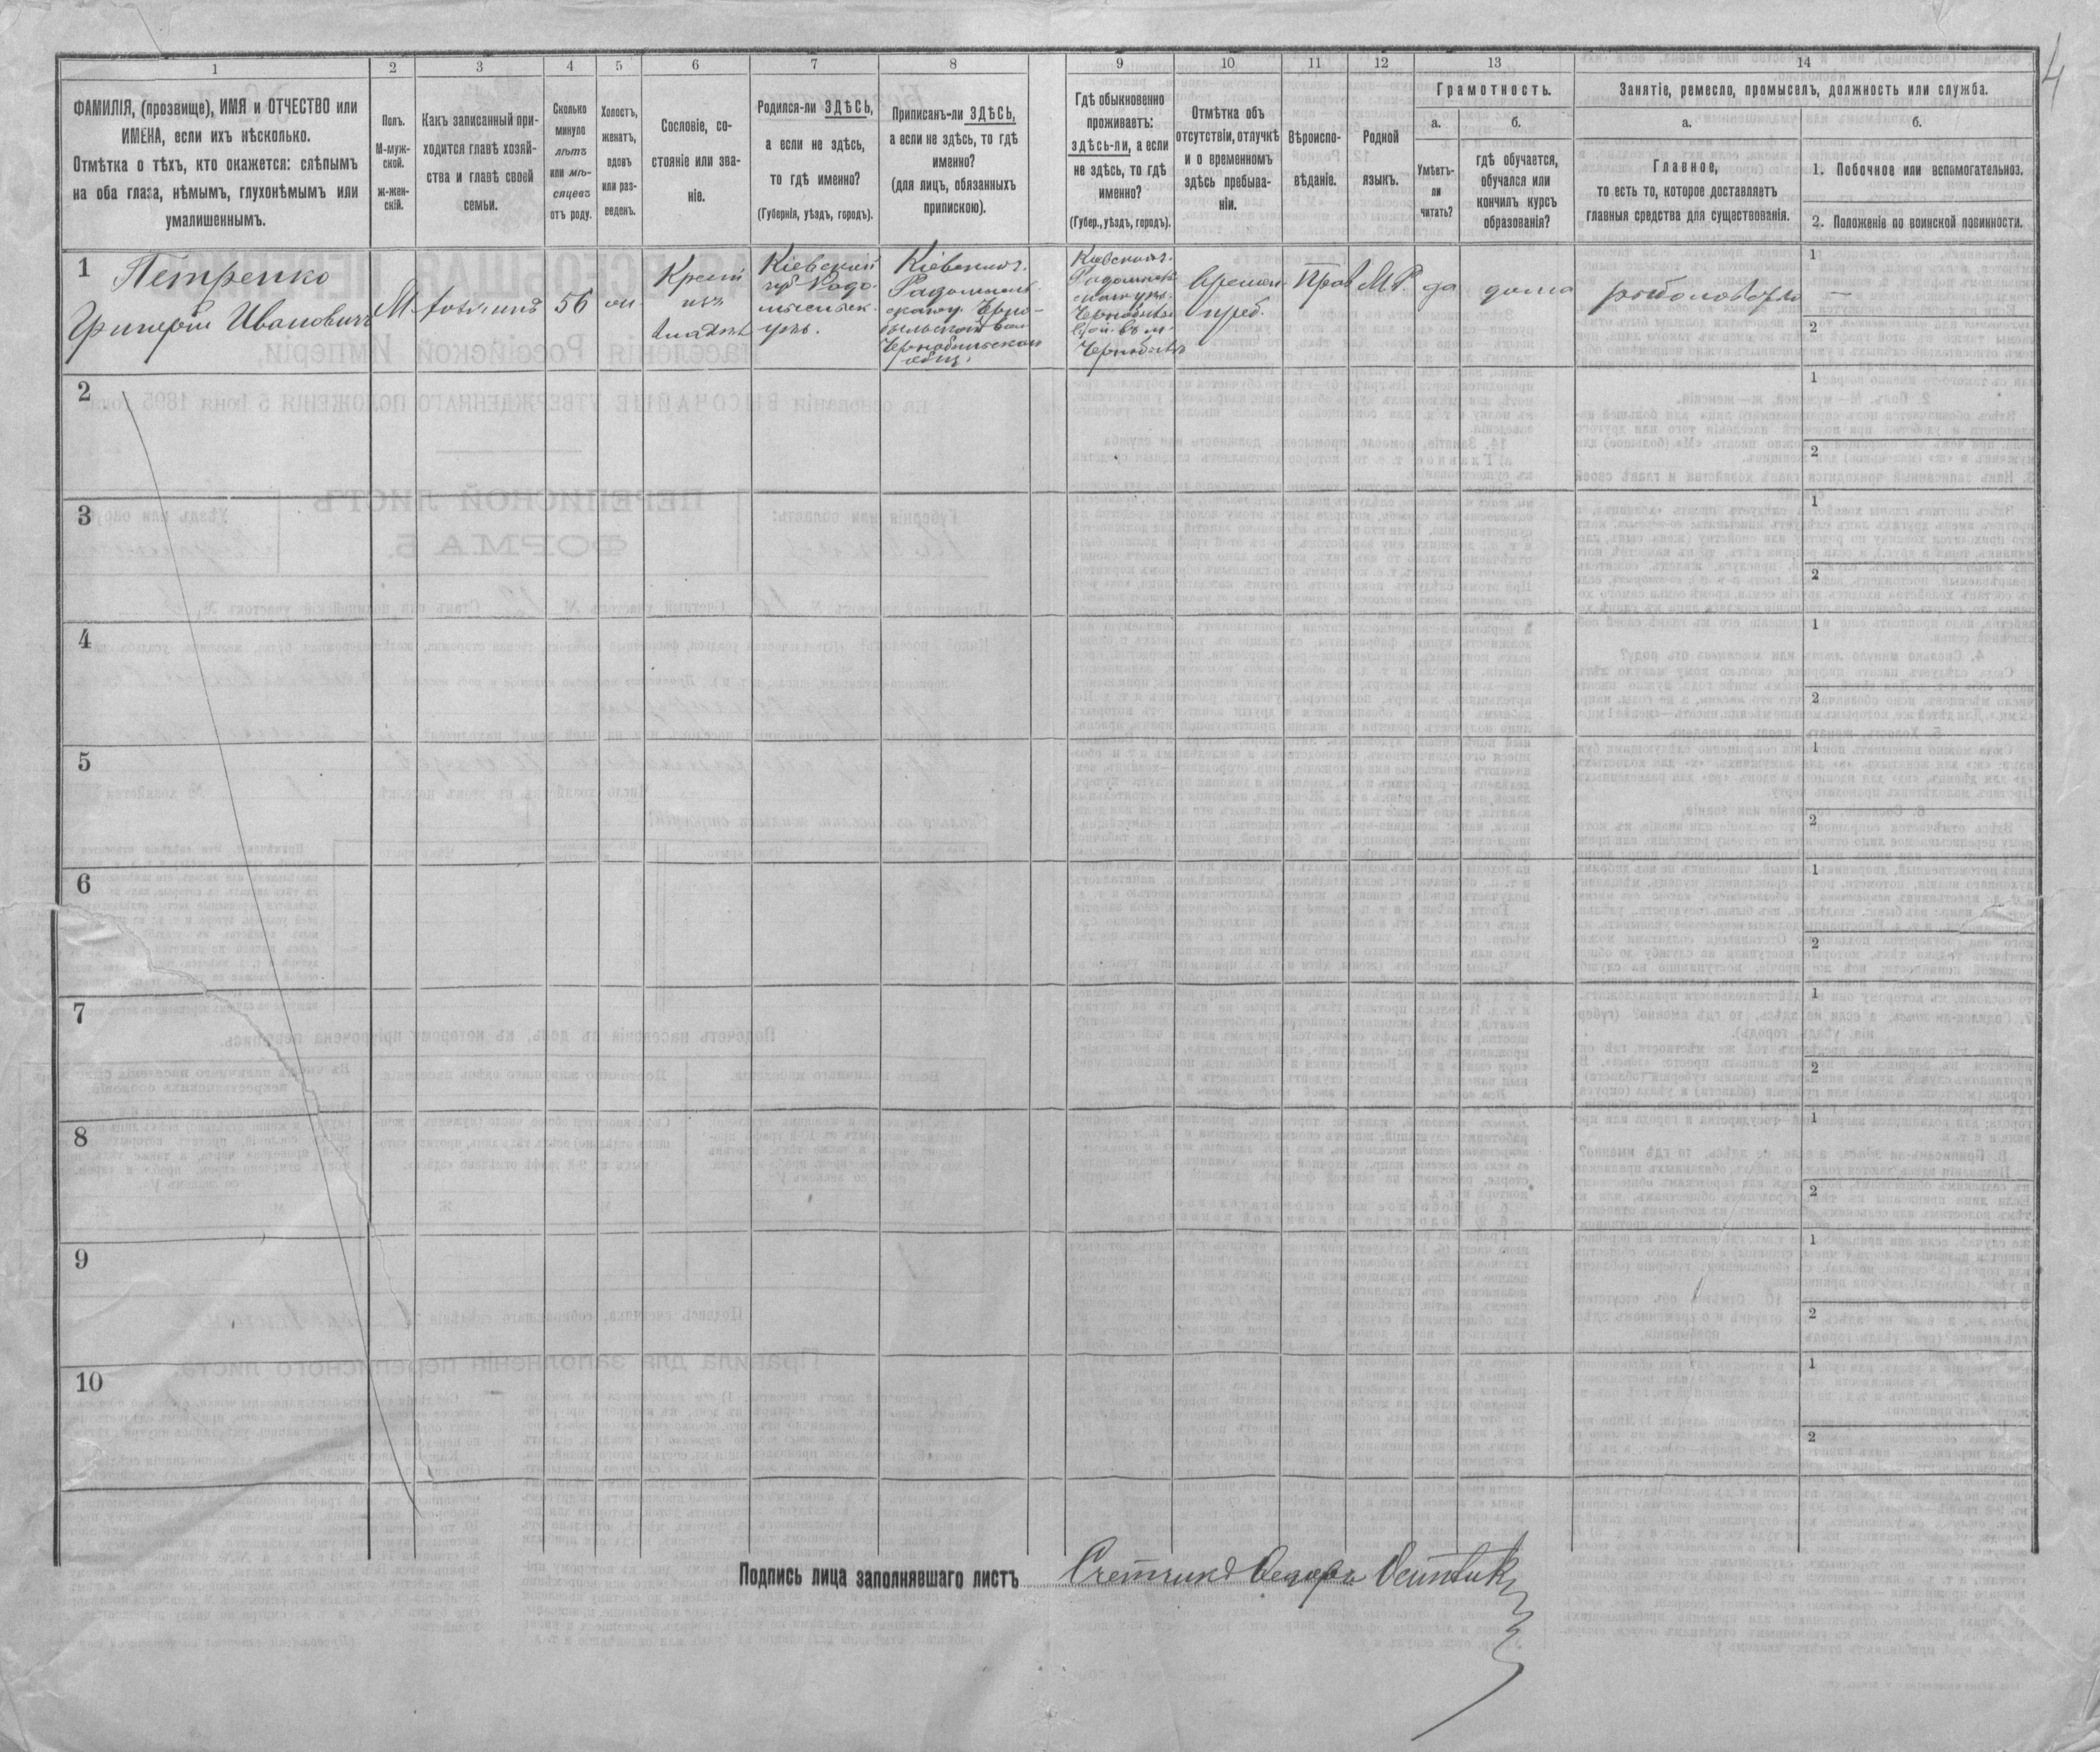 4
1
2
3
4
5
6
7
8
9
10
11
12
13
14
ФАМИЛІЯ, (прозвище), ИМЯ и ОТЧЕСТВО или
ИМЕНА, если ихъ нѣсколько.
Отмѣтка о тѣхъ, кто окажется: слѣпымъ
на оба глаза, нѣмымъ, глухонѣмымъ или
умалишеннымъ.
Полъ.
М-муж-
ской.
ж-жен-
скій.
Какъ записанный при-
ходится главѣ хозяй-
ства и главѣ своей
семьи.
Сколько
минуло
лѣтъ
или мѣ-
сяцевъ
отъ роду.
Холостъ,
женатъ,
вдовъ
или раз-
веденъ.
Сословіе, со-
стояніе или зва-
ніе.
Родился-ли ЗДѢСЬ,
а если не здѣсь,
то гдѣ именно?
(Губернія, уѣздъ, городъ).
Приписанъ-ли ЗДѢСЬ,
а если не здѣсь, то гдѣ
именно?
(для лицъ, обязанныхъ
припискою).
Гдѣ обыкновенно
проживаетъ:
здѣсь-ли, а если
не здѣсь, то гдѣ
именно?
(Губер., уѣздъ, городъ).
Отмѣтка объ
отсутствіи, отлучкѣ
и о временномъ
здѣсь пребыва-
ніи.
Вѣроиспо-
вѣданіе.
Родной
языкъ.
Грамотность.
а.
Умѣетъ-
ли
читать?
б.
гдѣ обучается,
обучался или
кончилъ курсъ
образованія?
Занятіе, ремесло, промыселъ, должность или служба.
а.
Главное,
то есть то, которое доставляетъ
главныя средства для существованія.
б.
1. Побочное или вспомогательноз.
2. Положеніе по воинской повинности.
1
Петренко
Григорій Ивановичъ
М
хозяинъ
56
жен.
Крест
изъ
владѣл
Кіевской
губ Радо-
мысльск.
уѣзъ.
Кіевской г.
Радомысль-
скому у. Черно-
быльской вол
Чернобыльском
общ.
Кіевской г.
Радомысль-
скаго уѣз.
Чернобыль
вол. въ м.
Чернобылѣ
Времен.
преб.
Прав
М.Р.
да
дома
рыболовство
1 —
2
2
1
2
3
1
2
4
1
2
5
1
2
6
1
2
7
1
2
8
1
2
9
1
2
10
1
2
Подпись лица заполнявшаго листъ Счетчикъ